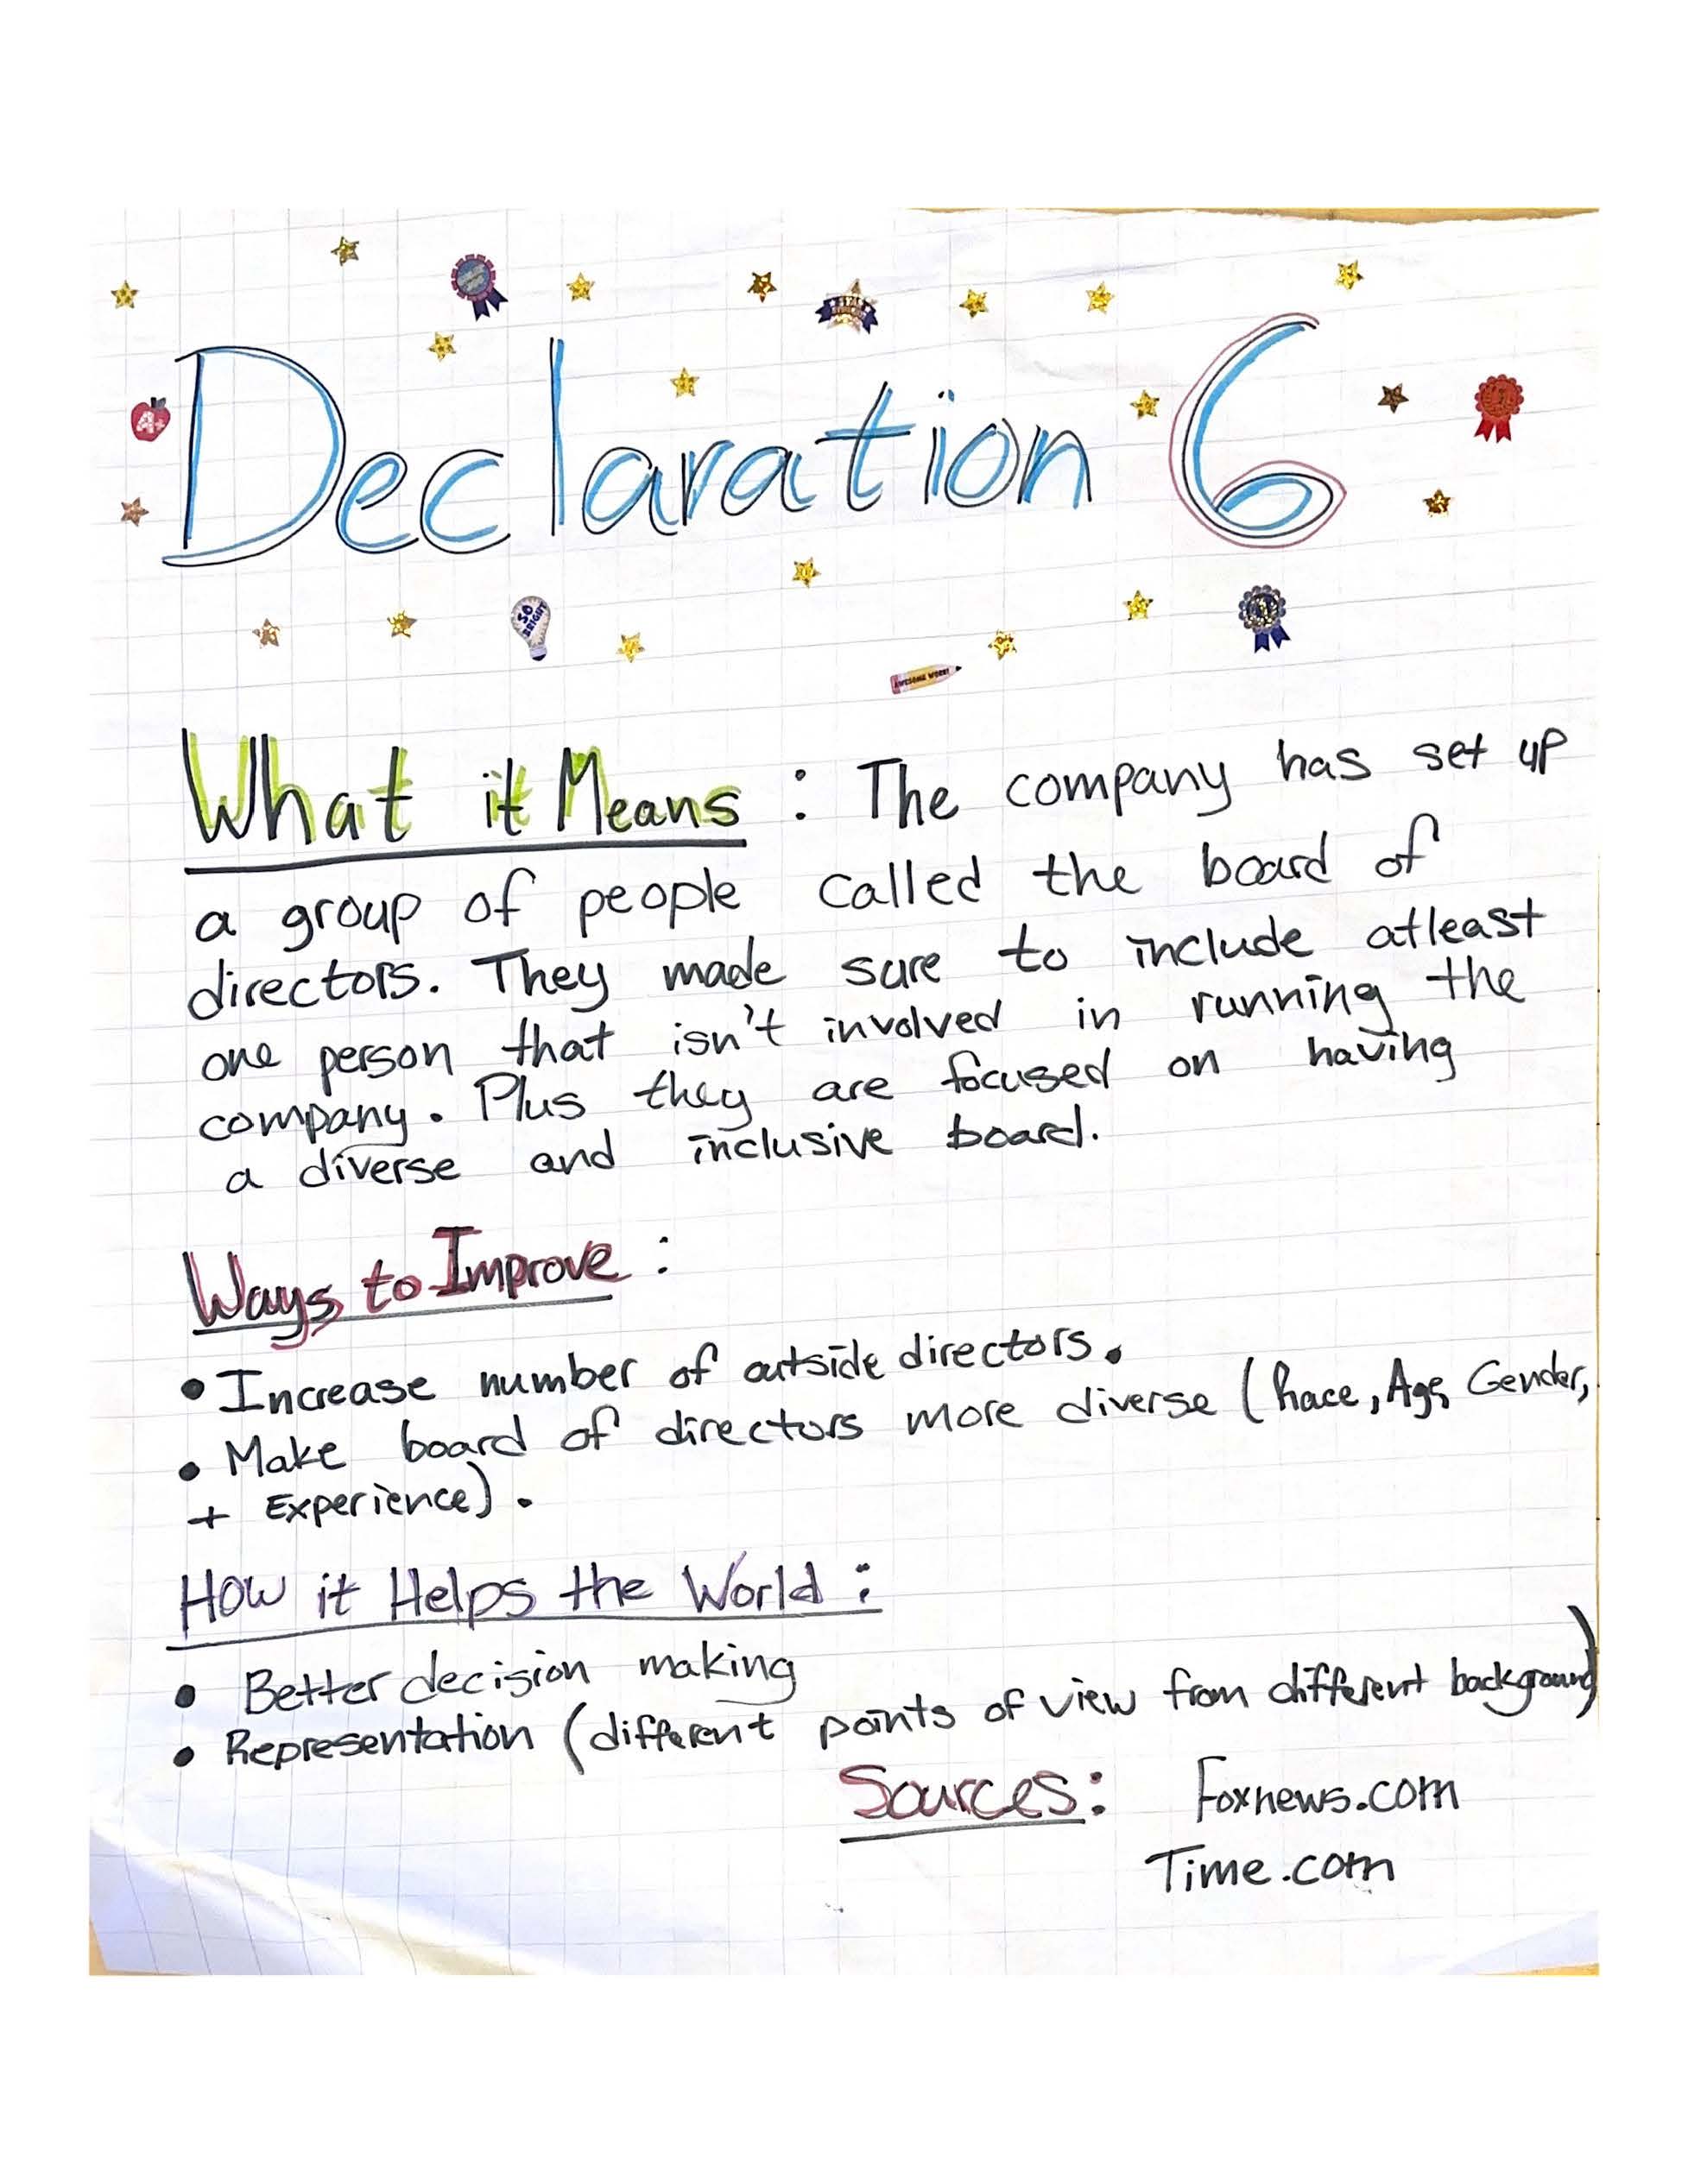 Declaration 6
A+
SO BRIGHT
AWESOME WORK!
What it Means : The company has set up
a group of people called the board of
directors. They made sure to include atleast
one person that isn't involved in running the
company. Plus they are focused on having
a diverse and inclusive board.
Ways to Improve :
• Increase number of outside directors.
• Make board of directors more diverse (Race, Age, Gender,
+ Experience).
How it Helps the World :
• Better decision making
• Representation (different points of view from different background)
Sources: Foxnews.com
Time.com